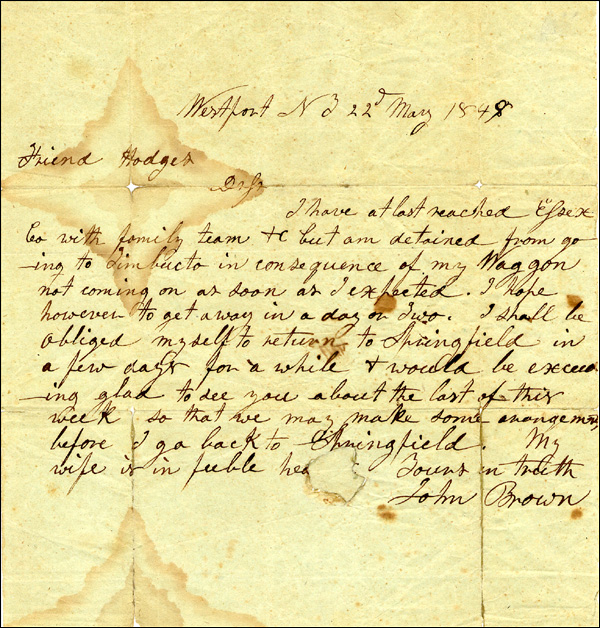 Westport N Y 22d May 1848
Friend Hodges
Dr Sir
I have at last reached Essex
Co with family team &c but am detained from go
-ing to Timbucto in consequence of my Waggon
not coming on as soon as I expected. I hope
however to get away in a day or Two. I shall be
obliged myself to return to Springfield in
a few days for a while & would be exceed
ing glad to see you about the last of this
week so that we may make some arangements
before I go back to Springfield. My
wife is in feeble hea Yours in truth
John Brown